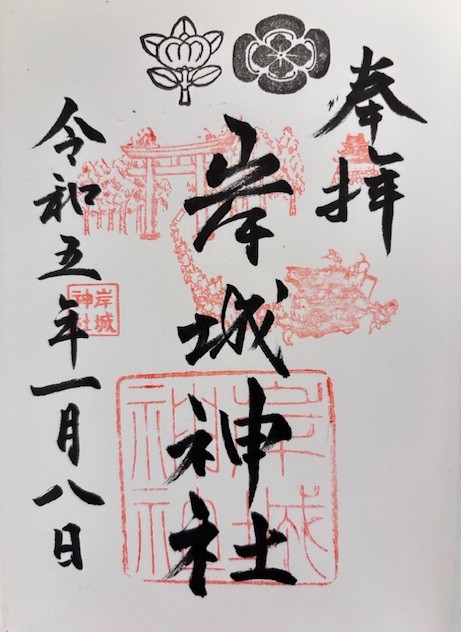 奉拝
岸城神社
令和五年一月八日
岸城
神社
岸城
神社